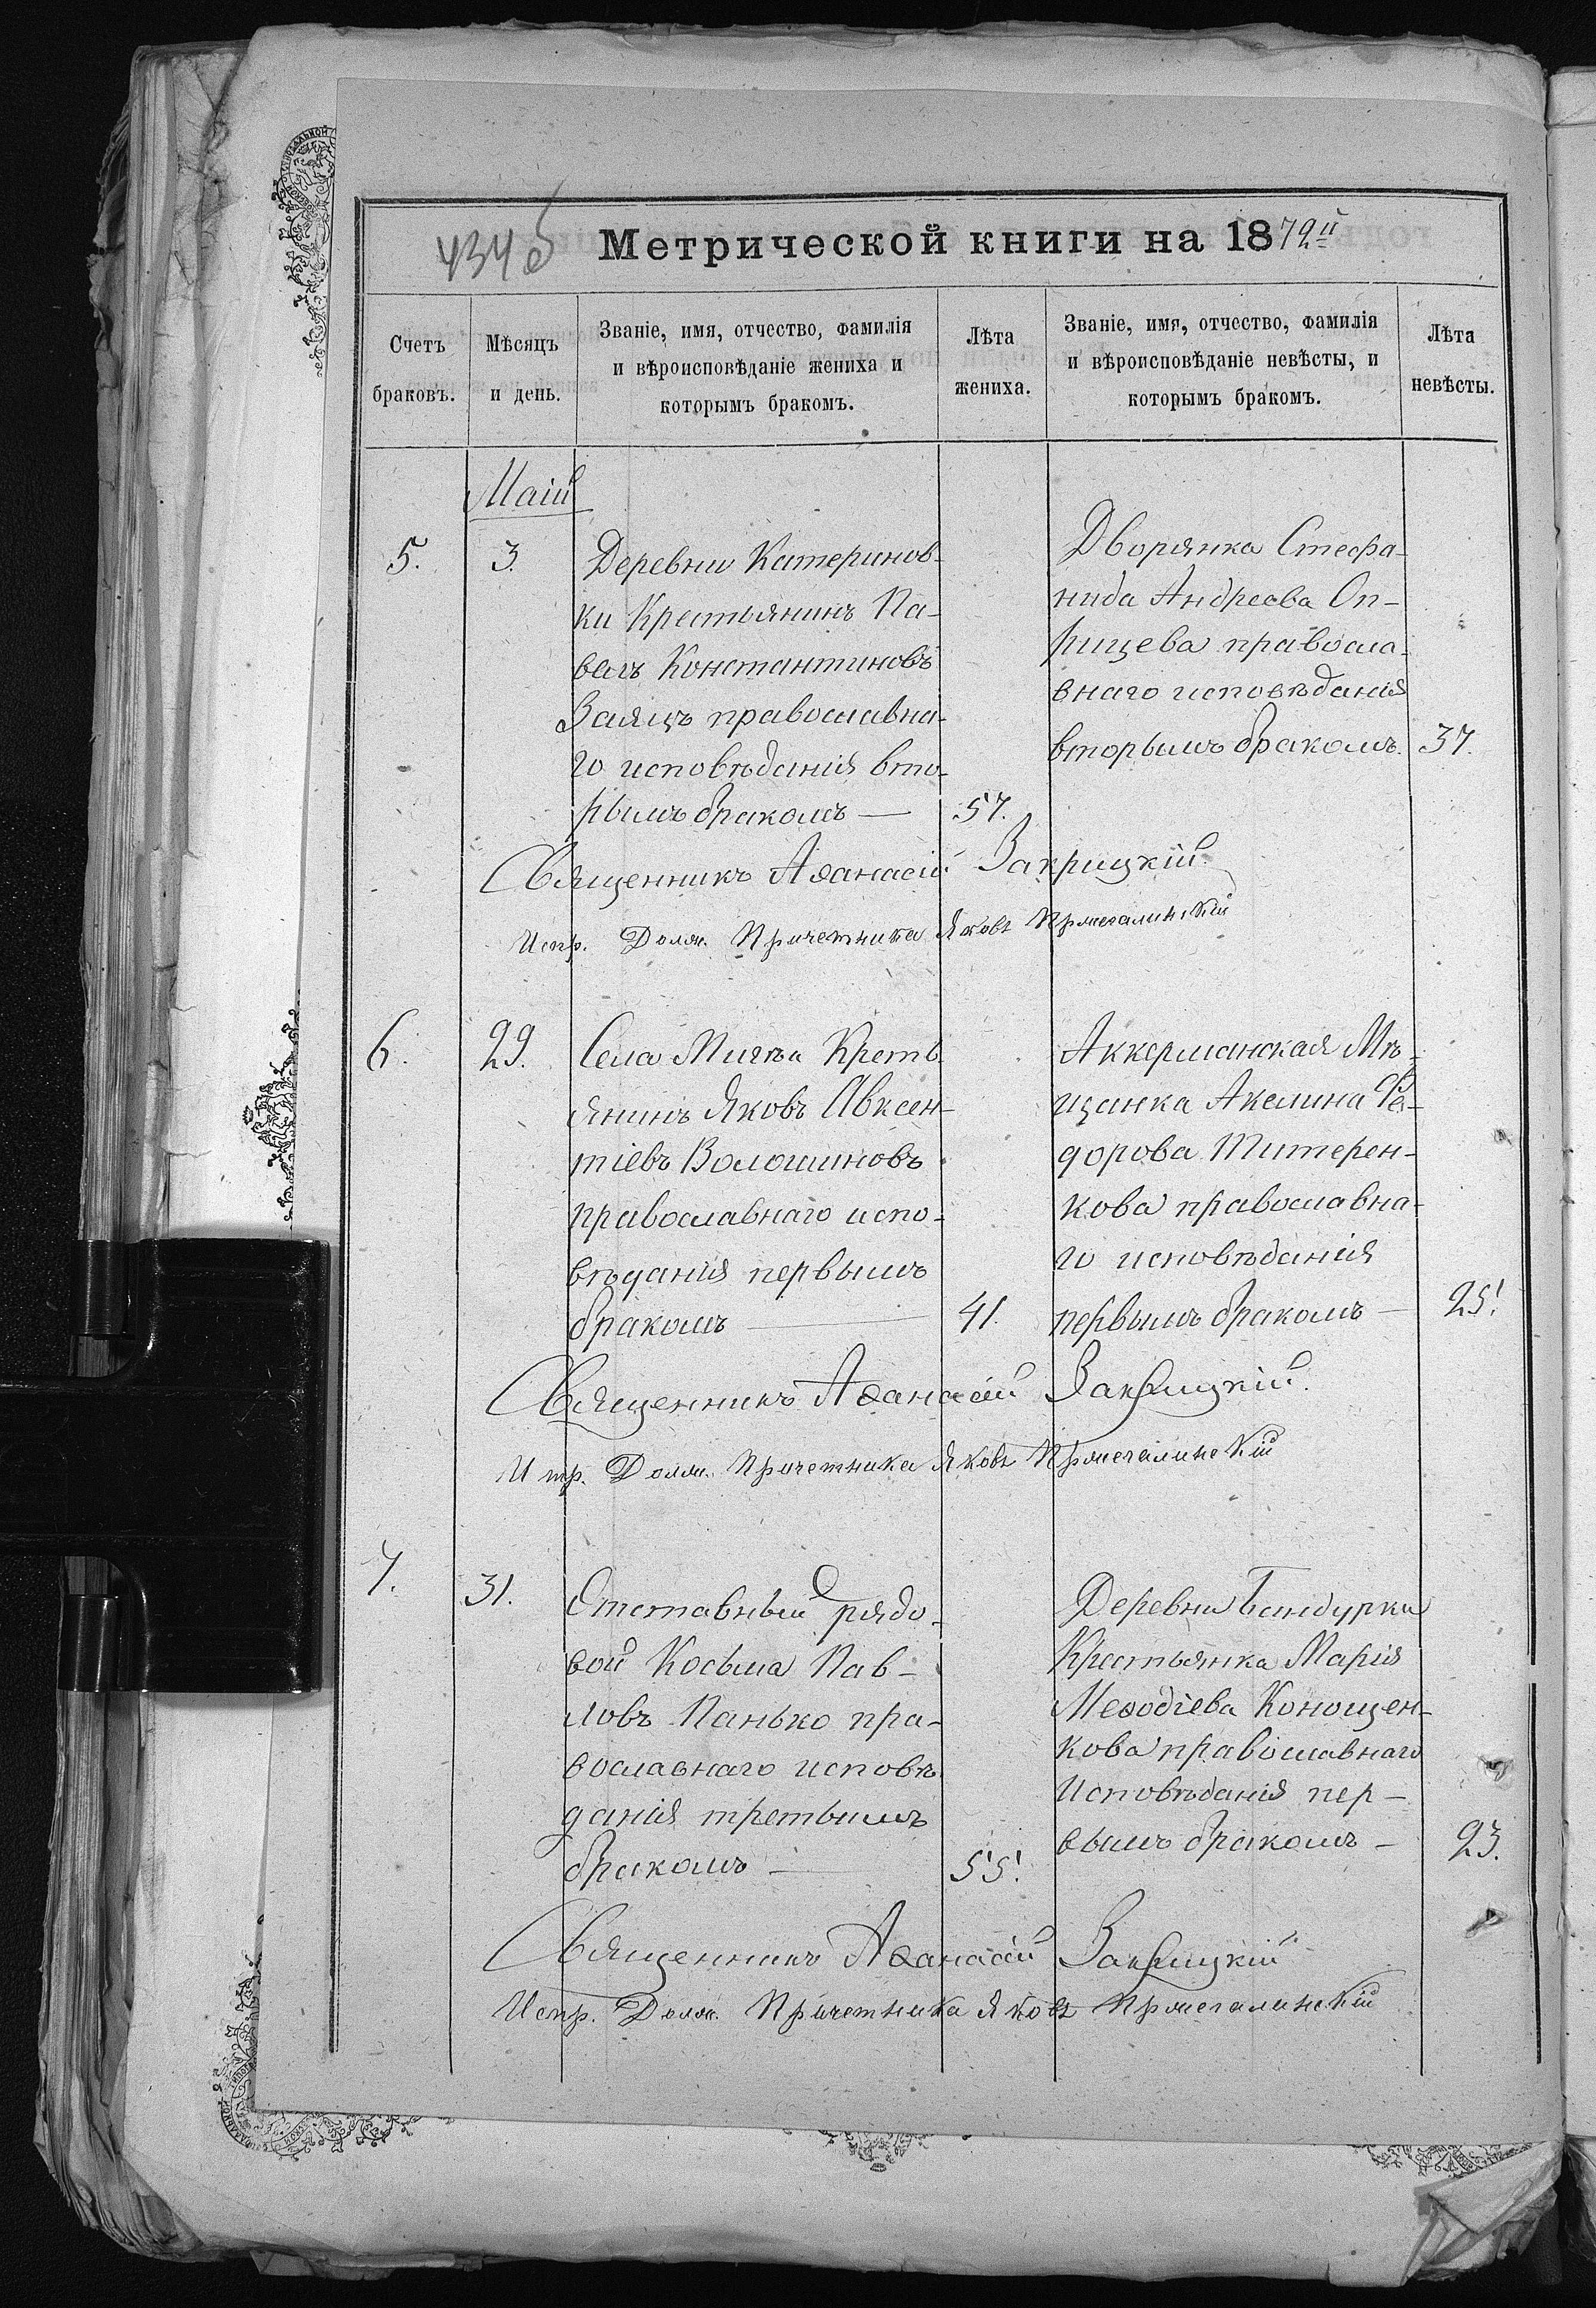 434б
Метрической книги на 1872й
Счетъ браковъ.
Мѣсяцъ и день.
Званіе, имя, отчество, фамилія
и вѣроисповѣданіе жениха и
которымъ бракомъ.
Лѣта жениха.
Званіе, имя, отчество, фамилія
и вѣроисповѣданіе невѣсты, и
которымъ бракомъ.
Лѣта невѣсты.
Маій
5. 3.
Деревни Катеринов-
ки Крестьянинъ Па-
велъ Константиновъ
Заяцъ православна-
го исповѣданія вто-
рымъ бракомъ — 57.
Дворянка Стефа-
нида Андреева Оп-
рицева правосла-
внаго исповѣданія
вторымъ бракомъ. 37.
Священникъ Аѳанасій Закрицкій.
Испр. Долж. Причетника Яковъ
6. 29.
Села Мигѣи Кресть
янинъ Яковъ Авксен-
тіевъ Волошиновъ
православнаго испо-
вѣданія первымъ
бракомъ — 41.
Аккерманская Мѣ-
щанка Акелина Фе-
дорова Титерен-
кова православна-
го исповѣданія
первымъ бракомъ — 25.
Священникъ Аѳанасій Закрицкій.
Испр. Долж. Причетника Яковъ
7. 31.
Отставный рядо-
вой Косьма Пав-
ловъ Панько пра-
вославнаго исповѣ
данія третьимъ
бракомъ — 55.
Деревни Бандурки
Крестьянка Марія
Меѳодіева Конощен-
кова православнаго
Исповѣданія пер-
вымъ бракомъ — 23.
Священникъ Аѳанасій Закрицкій
Испр. Долж. Причетника Яковъ